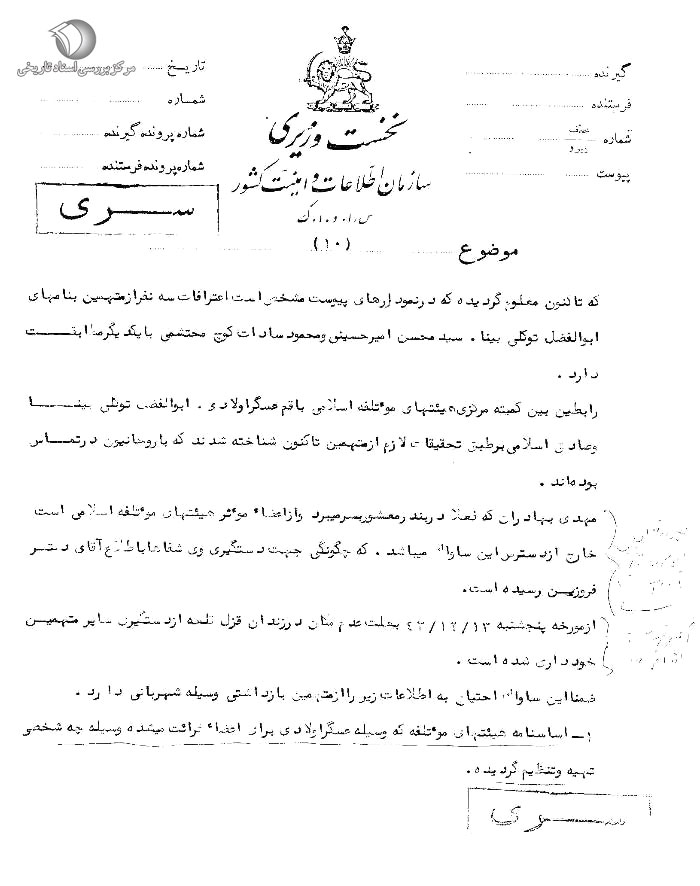 مرکز بررسی اسناد تاریخی
تاریخ
شماره
شماره پرونده گیرنده
شماره پرونده فرستنده
سری
نخست وزیری
سازمان اطلاعات و امنیت کشور
س.ا.و.ا.ک
(۱۰)
گیرنده
فرستنده
شماره
پیوست
موضوع
که تاکنون معلوم گردیده که در نمودارهای پیوست مشخص است اعترافات سه نفر از متهمین بنامهای
ابوالفضل توکلی بینا ، سید محسن امیرحسینی و محمود سادات کوچ محتشمی با یکدیگر مطابقت
دارد .
رابطین بین کمیته مرکزی هیئتهای موئتلفه اسلامی با قم عسگراولادی ، ابوالفضل توکلی بینا
و صادق اسلامی برطبق تحقیقات لازم از متهمین تاکنون شناخته شدند که با روحانیون در تماس
بوده‌اند .
مهدی بهادران که فعلا در بندر معشور بسر میبرد و از اعضاء موثر هیئتهای موئتلفه اسلامی است
خارج از دسترس این ساواک میباشد . که چگونگی جهت دستگیری وی شفاها باطلاع آقای دکتر
فروزین رسیده است.
از مورخه پنجشنبه ۴۳/۱۲/۱۳ بعلت عدم مکان در زندان قزل قلعه از دستگیری سایر متهمین
خودداری شده است .
ضمنا این ساواک احتیاج به اطلاعات زیر را از متهمین بازداشتی وسیله شهربانی دارد .
۱ـ اساسنامه هیئتهای موئتلفه که وسیله عسگراولادی برای اعضاء قرائت میشده وسیله چه شخصی
تهیه و تنظیم گردیده .
سری